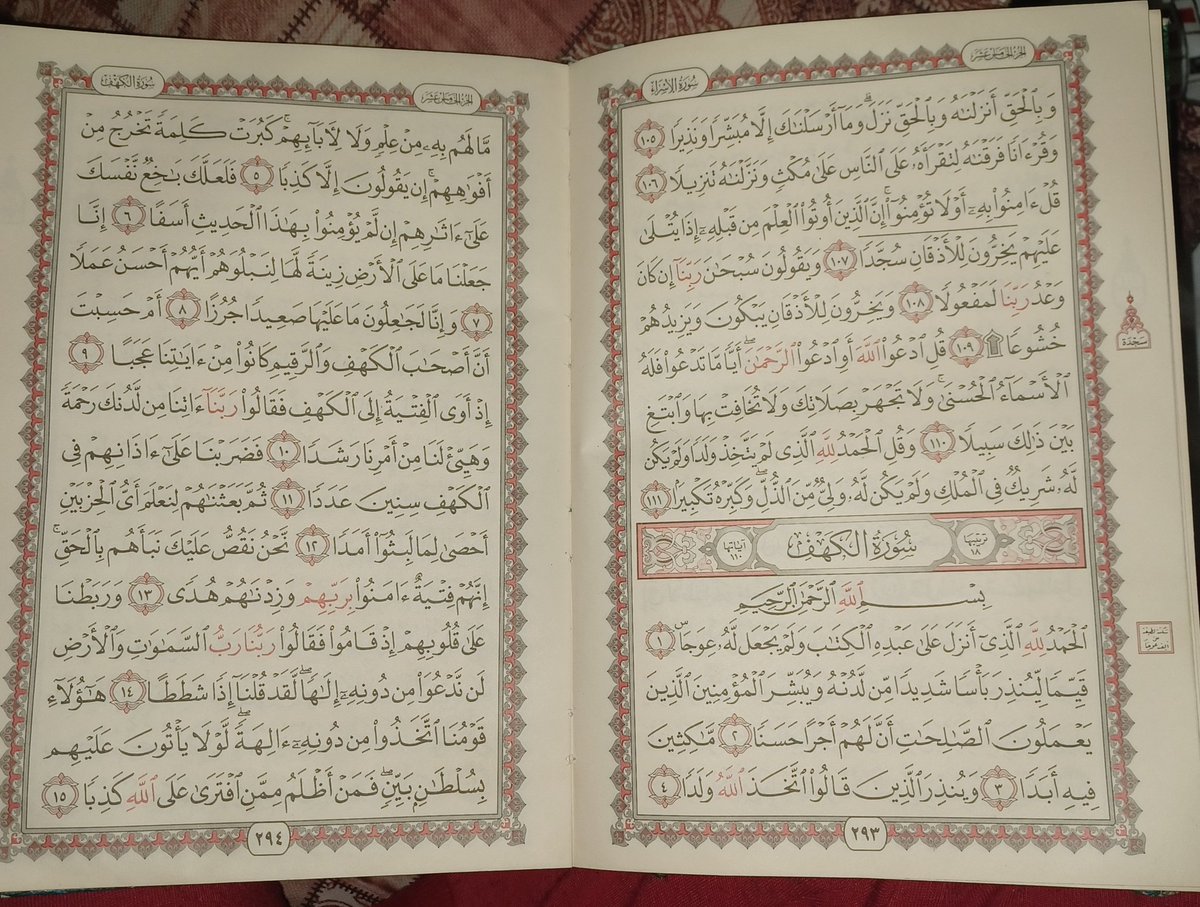 الجزء الخامس عشر
سورة الإسراء
وَبِٱلْحَقِّ أَنزَلْنَٰهُ وَبِٱلْحَقِّ نَزَلَ ۗ وَمَآ أَرْسَلْنَٰكَ إِلَّا مُبَشِّرًا وَنَذِيرًا ١٠٥
وَقُرْءَانًا فَرَقْنَٰهُ لِتَقْرَأَهُۥ عَلَى ٱلنَّاسِ عَلَىٰ مُكْثٍ وَنَزَّلْنَٰهُ تَنزِيلًا ١٠٦
قُلْ ءَامِنُوا۟ بِهِۦٓ أَوْ لَا تُؤْمِنُوٓا۟ ۚ إِنَّ ٱلَّذِينَ أُوتُوا۟ ٱلْعِلْمَ مِن قَبْلِهِۦٓ إِذَا يُتْلَىٰ
عَلَيْهِمْ يَخِرُّونَ لِلْأَذْقَانِ سُجَّدًا ١٠٧ وَيَقُولُونَ سُبْحَٰنَ رَبِّنَآ إِن كَانَ
وَعْدُ رَبِّنَا لَمَفْعُولًا ١٠٨ وَيَخِرُّونَ لِلْأَذْقَانِ يَبْكُونَ وَيَزِيدُهُمْ
خُشُوعًا ۩ ١٠٩ قُلِ ٱدْعُوا۟ ٱللَّهَ أَوِ ٱدْعُوا۟ ٱلرَّحْمَٰنَ ۖ أَيًّا مَّا تَدْعُوا۟ فَلَهُ
ٱلْأَسْمَآءُ ٱلْحُسْنَىٰ ۚ وَلَا تَجْهَرْ بِصَلَاتِكَ وَلَا تُخَافِتْ بِهَا وَٱبْتَغِ
بَيْنَ ذَٰلِكَ سَبِيلًا ١١٠ وَقُلِ ٱلْحَمْدُ لِلَّهِ ٱلَّذِى لَمْ يَتَّخِذْ وَلَدًا وَلَمْ يَكُن
لَّهُۥ شَرِيكٌ فِى ٱلْمُلْكِ وَلَمْ يَكُن لَّهُۥ وَلِىٌّ مِّنَ ٱلذُّلِّ ۖ وَكَبِّرْهُ تَكْبِيرًا ١١١
ترتيبها ١٨ سُورَةُ الكَهْفِ آياتها ١١٠
بِسْمِ ٱللَّهِ ٱلرَّحْمَٰنِ ٱلرَّحِيمِ
ٱلْحَمْدُ لِلَّهِ ٱلَّذِىٓ أَنزَلَ عَلَىٰ عَبْدِهِ ٱلْكِتَٰبَ وَلَمْ يَجْعَل لَّهُۥ عِوَجَا ۜ ١
قَيِّمًا لِّيُنذِرَ بَأْسًا شَدِيدًا مِّن لَّدُنْهُ وَيُبَشِّرَ ٱلْمُؤْمِنِينَ ٱلَّذِينَ
يَعْمَلُونَ ٱلصَّٰلِحَٰتِ أَنَّ لَهُمْ أَجْرًا حَسَنًا ٢ مَّٰكِثِينَ
فِيهِ أَبَدًا ٣ وَيُنذِرَ ٱلَّذِينَ قَالُوا۟ ٱتَّخَذَ ٱللَّهُ وَلَدًا ٤
٢٩٣
سجدة
الجزء الخامس عشر
سورة الكهف
مَّا لَهُم بِهِۦ مِنْ عِلْمٍ وَلَا لِءَابَآئِهِمْ ۚ كَبُرَتْ كَلِمَةً تَخْرُجُ مِنْ
أَفْوَٰهِهِمْ ۚ إِن يَقُولُونَ إِلَّا كَذِبًا ٥ فَلَعَلَّكَ بَٰخِعٌ نَّفْسَكَ
عَلَىٰٓ ءَاثَٰرِهِمْ إِن لَّمْ يُؤْمِنُوا۟ بِهَٰذَا ٱلْحَدِيثِ أَسَفًا ٦ إِنَّا
جَعَلْنَا مَا عَلَى ٱلْأَرْضِ زِينَةً لَّهَا لِنَبْلُوَهُمْ أَيُّهُمْ أَحْسَنُ عَمَلًا
٧ وَإِنَّا لَجَٰعِلُونَ مَا عَلَيْهَا صَعِيدًا جُرُزًا ٨ أَمْ حَسِبْتَ
أَنَّ أَصْحَٰبَ ٱلْكَهْفِ وَٱلرَّقِيمِ كَانُوا۟ مِنْ ءَايَٰتِنَا عَجَبًا ٩
إِذْ أَوَى ٱلْفِتْيَةُ إِلَى ٱلْكَهْفِ فَقَالُوا۟ رَبَّنَآ ءَاتِنَا مِن لَّدُنكَ رَحْمَةً
وَهَيِّئْ لَنَا مِنْ أَمْرِنَا رَشَدًا ١٠ فَضَرَبْنَا عَلَىٰٓ ءَاذَانِهِمْ فِى
ٱلْكَهْفِ سِنِينَ عَدَدًا ١١ ثُمَّ بَعَثْنَٰهُمْ لِنَعْلَمَ أَىُّ ٱلْحِزْبَيْنِ
أَحْصَىٰ لِمَا لَبِثُوٓا۟ أَمَدًا ١٢ نَّحْنُ نَقُصُّ عَلَيْكَ نَبَأَهُم بِٱلْحَقِّ ۚ
إِنَّهُمْ فِتْيَةٌ ءَامَنُوا۟ بِرَبِّهِمْ وَزِدْنَٰهُمْ هُدًى ١٣ وَرَبَطْنَا
عَلَىٰ قُلُوبِهِمْ إِذْ قَامُوا۟ فَقَالُوا۟ رَبُّنَا رَبُّ ٱلسَّمَٰوَٰتِ وَٱلْأَرْضِ
لَن نَّدْعُوَا۟ مِن دُونِهِۦٓ إِلَٰهًا ۖ لَّقَدْ قُلْنَآ إِذًا شَطَطًا ١٤ هَٰٓؤُلَآءِ
قَوْمُنَا ٱتَّخَذُوا۟ مِن دُونِهِۦٓ ءَالِهَةً ۖ لَّوْلَا يَأْتُونَ عَلَيْهِم
بِسُلْطَٰنٍۭ بَيِّنٍ ۖ فَمَنْ أَظْلَمُ مِمَّنِ ٱفْتَرَىٰ عَلَى ٱللَّهِ كَذِبًا ١٥
٢٩٤